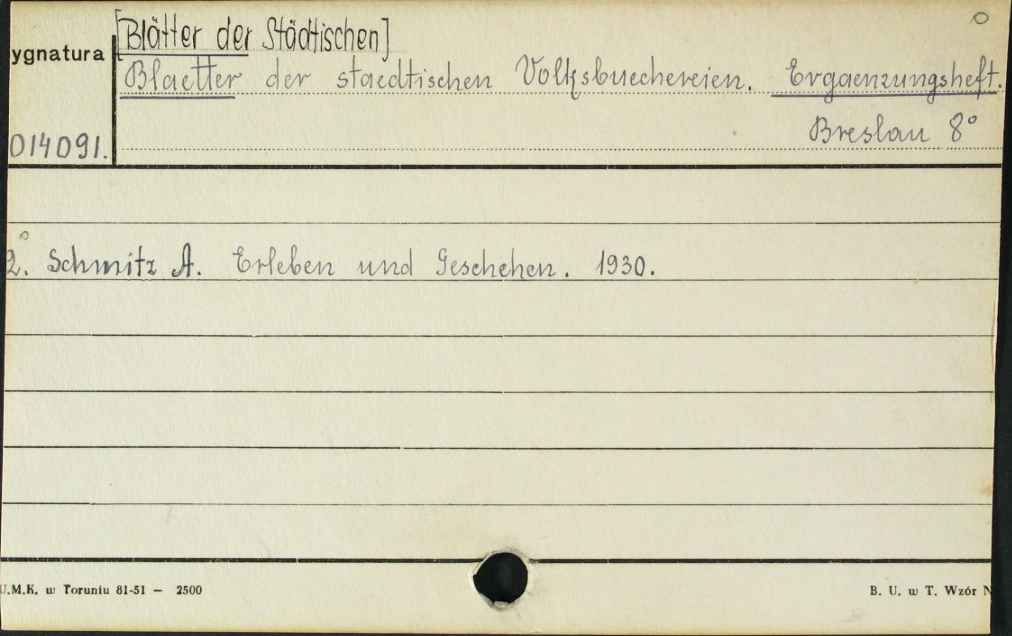 [Blätter der Städtischen]
ygnatura
Blaetter der staedtischen Volksbuechereien. Ergaenzungsheft.
Breslau 8°
014091.
2. Schmitz A. Erleben und Geschehen. 1930.
U.M.K. w Toruniu 81-51 — 2500
B. U. w T. Wzór N